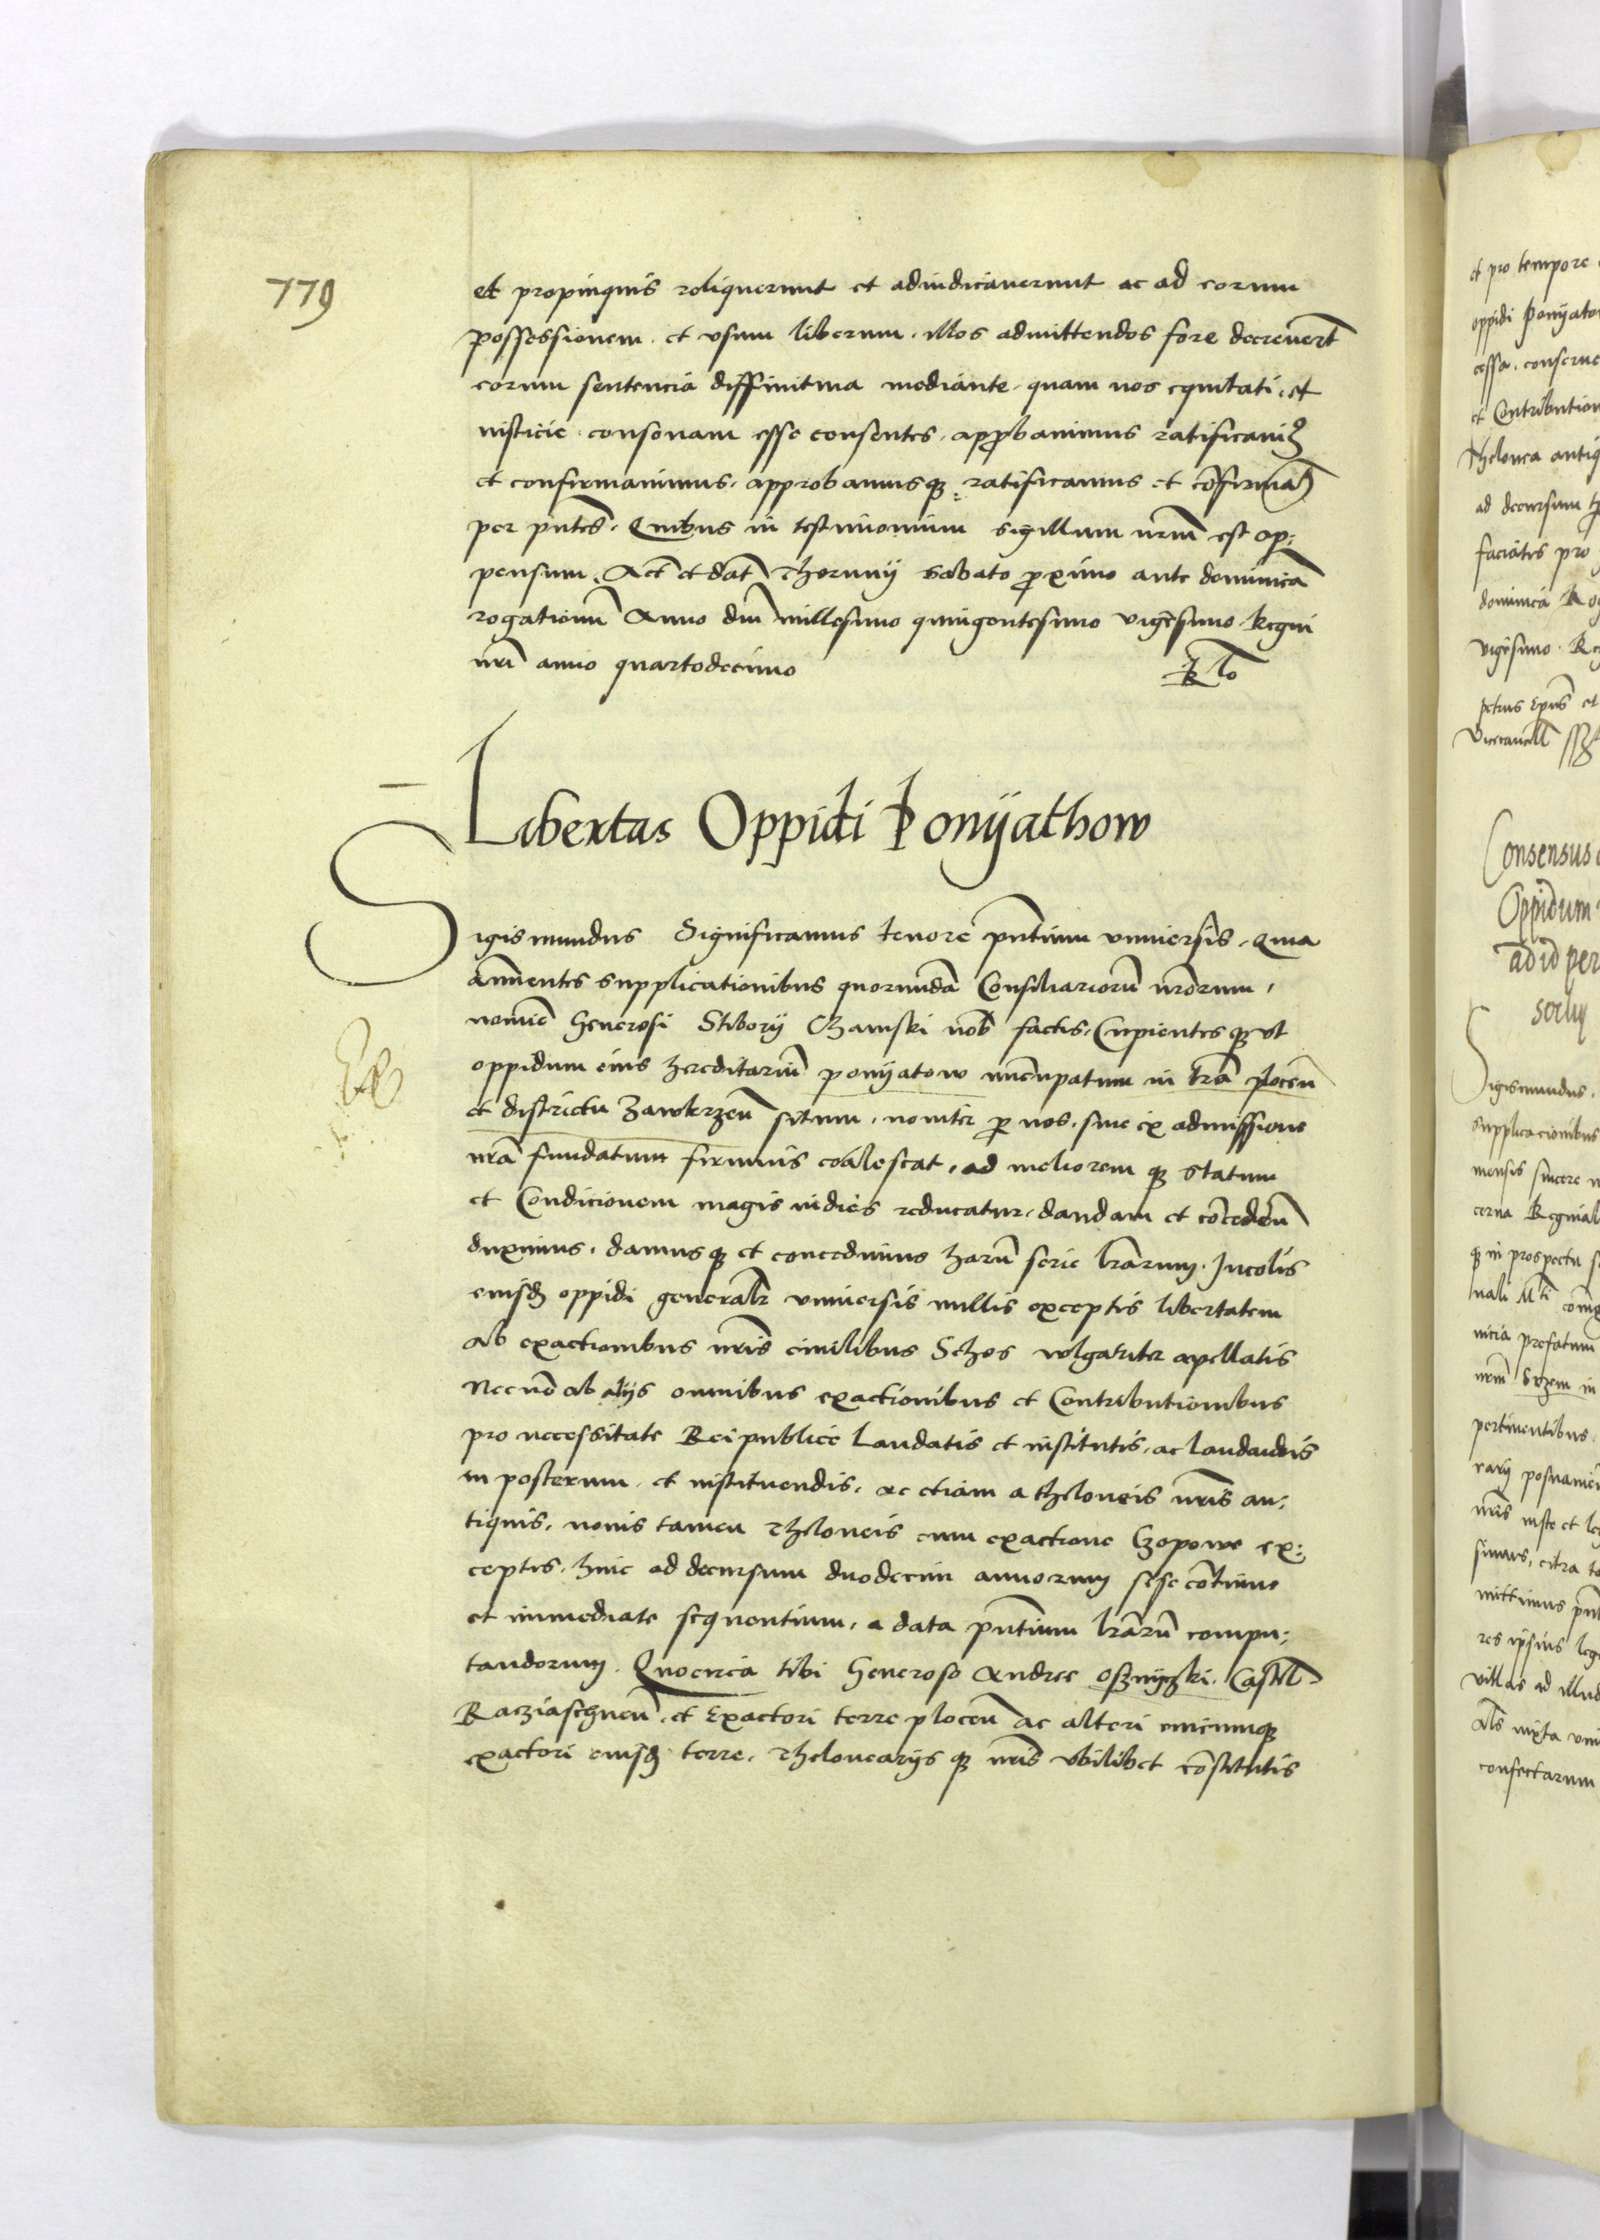 779
et propinquis reliquerunt et adiudicaverunt ac ad eorum
possessionem et vsum liberum illos admittendos fore decreuerūt
eorum sentencia diffinitiua mediante quam nos equitati et
iusticie consonam esse censentes approbauimus ratificauim9
et confirmauimus approbamusq3 ratificamus et cōfirmam9
per pntes. Quibus in testimonium sigillum nrm̄ est ap:
pensum. Act̄ et dat̄ Thorunij sabato ꝓximo ante dominicā
rogationū Anno dni millesimo quingentesimo vigesimo Regni
nri anno quartodecimo
Libertas Oppidi Ponyathow
Sigismundus Significamus tenore pn̄tium vniuersis. Quia
annuentes supplicationibus quorundā Consiliariorū nrōrum,
nomīe Generosi Stiborij nob̄ factis, Cupientesq3 vt
oppidum eius hereditariū ponyatow nūcupatum in trā plocen̄
et districtu Zawkrzen̄ situm, nouiter ꝑ nos, siue ex admissione
nrā fundatum firmius coalescat, ad melioremq3 statum
et Condicionem magis indies reducatur, dandam et cōcedēn̄
duximus, damusq3 et concedimus harū serie lrārum, Incolis
eiusd̄ oppidi generalr̄ vniuersis nullis exceptis libertatem
ab exactionibus nrīs ciuilibus Schos wlgariter apellatis
Necnō ab alijs omnibus exactionibus et Contributionibus
pro necessitate Rei publice Laudatis et institutis, ac laudandis
in posterum et instituendis, ac etiam a theloneis nrīs an:
tiquis, nouis tamen theloneis cum exactione Czopowe ex:
ceptis, huic ad decursum duodecim annorum sese cōtinue
et immediate sequentium, a data pn̄tium lrārū compu:
tandorum. Quocirca tibi Generoso Andree Castel
Racziaschnen̄, et Exactori terre plocen̄ ac alteri cuicunq3
exactori eiusd̄ terre, Thelonearijsq3 nrīs vbilibet cōstitutis
et pro tempore
oppidi Ponyato
cessa, conserue
et Contribution
Thelonea antiq
ad decursum
faciatis pro
dominicā Rog
vigesimo. Re
petrus Epūs et
Vicecancell̄
Consensus
Oppidum
ad id per
Sigismundus,
supplicacionibus
mensis sincere
cerna Reginal
q3 in prospectu
prefatum
pertinentibus
nrīs iuste et le
mittimus pn̄
res ipsius leg
villas ad illud
als iuxta
confectarum